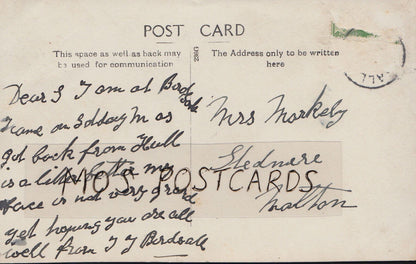 POST CARD
This space as well as back may
be used for communication
The Address only to be written
here
Dear S I am at Birdsall
I came on
got back from Hull
is a little better my
face is not very
yet hoping you are all
well from T J Birdsall
Mrs Markeby
Sledmere
Malton
MOJO POSTCARDS